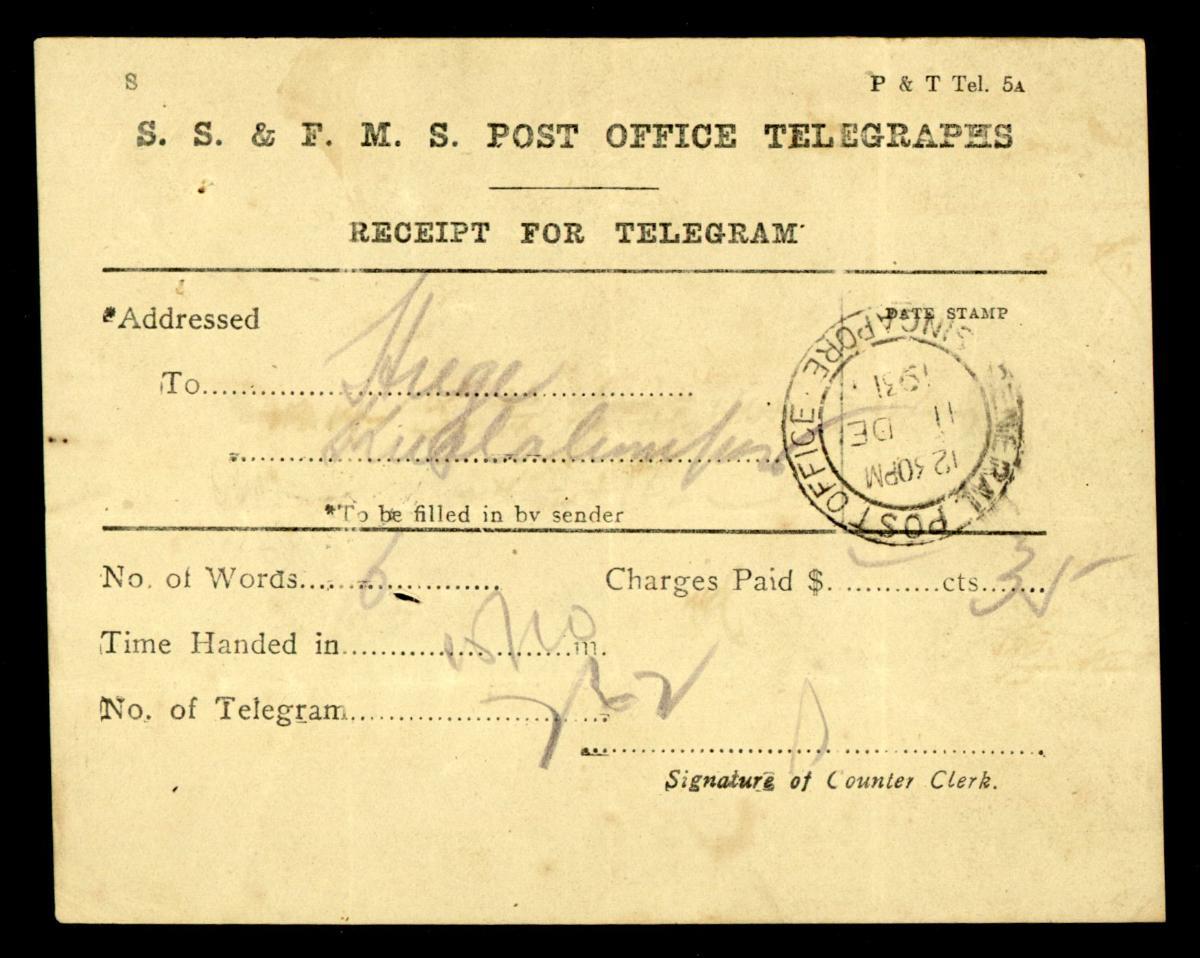 8
P & T Tel. 5A
S. S. & F. M. S. POST OFFICE TELEGRAPHS
RECEIPT FOR TELEGRAM
*Addressed
DATE STAMP
To
Kualalumpur
*To be filled in by sender
GENERAL POST OFFICE · SINGAPORE ·
12 30PM
11 DE
1931
No. of Words 6
Charges Paid $ cts 35
Time Handed in m.
No. of Telegram
Signature of Counter Clerk.